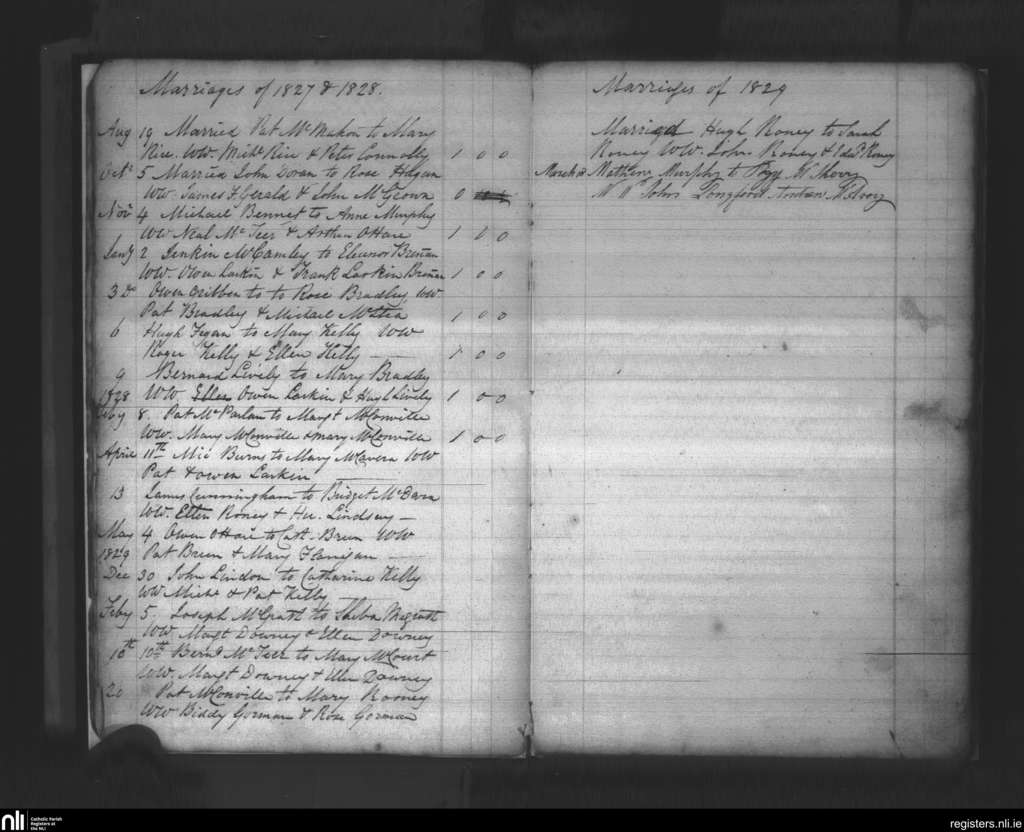 Marriages of 1827 & 1828.
Aug 19 Married Pat McMahon to Mary
Rice. WW. Michl Rice & Peter Connolly 1 0 0
Octr 5 Married John Doran to Rose Hagan
WW. James FGerald & John McGeown 0
Novr 4 Michael Bennet to Anne Murphy
WW Neal McTeer & Arthur OHare 1 0 0
Jany 2 Jenkin McCamley to Eleanor Brenan
WW. Owen Larkin & Frank Larkin Brenan 1 0 0
3 Do Owen Gribben to to Rose Bradley WW
Pat Bradley & Michael 1 0 0
6 Hugh Fegan to Mary Kelly WW
Roger Kelly & Ellen Kelly 1 0 0
9 Bernard Lively to Mary Bradley
1828 WW Ellen Owen Larkin & Hugh Lively 1 0 0
Feby 8. Pat McParlan to Margt McConville
WW. Mary McConville & Mary McConville 1 0 0
April 11th Mic Burns to Mary McCavera WW
Pat & Owen Larkin
13 James Cunningham to Bridget
WW. Ellen Roney & Hu. Lindsay
May 4 Owen OHare to Cath. Breen WW
1829 Pat Breen & Mary Flanigan
Dec 30 John Lindon to Catharine Kelly
WW Michl & Pat Kelly
Feby 5. Joseph McGrath to Sheba Magrath
WW Margt Downey & Ellen Downey
10th 10th Bernd McTeer to Mary McCourt
WW. Margt Downey & Ellen Downey
20 Pat McConville to Mary Rooney
WW Biddy Gorman & Rose Gorman
Marriages of 1829
Married Hugh Roney to Sarah
Roney WW. John Roney & Edwd Roney
March Mathew Murphy to Peggy
WW John Longford
nli Catholic Parish
Registers at
the NLI
registers.nli.ie